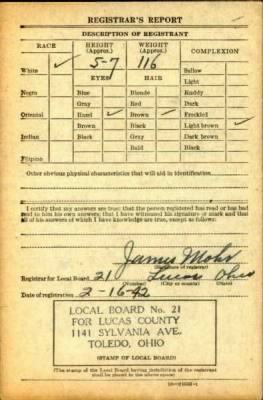 REGISTRAR'S REPORT
DESCRIPTION OF REGISTRANT
RACE HEIGHT (Approx.) WEIGHT (Approx.) COMPLEXION
White ✓ 5-7 116 Sallow
EYES HAIR Light
Negro Blue Blonde Ruddy
Gray Red Dark
Oriental Hazel ✓ Brown ✓ Freckled
Brown Black Light brown ✓
Indian Black Gray Dark brown
Bald Black
Filipino
Other obvious physical characteristics that will aid in identification
I certify that my answers are true; that the person registered has read or has had
read to him his own answers; that I have witnessed his signature or mark and that
all of his answers of which I have knowledge are true, except as follows:
James Mohr
(Signature of registrar)
Registrar for Local Board 21 Lucas Ohio
(Number) (City or county) (State)
Date of registration 2-16-42
LOCAL BOARD No. 21
FOR LUCAS COUNTY
1141 SYLVANIA AVE.
TOLEDO, OHIO
(STAMP OF LOCAL BOARD)
(The stamp of the Local Board having jurisdiction of the registrant
shall be placed in the above space.)